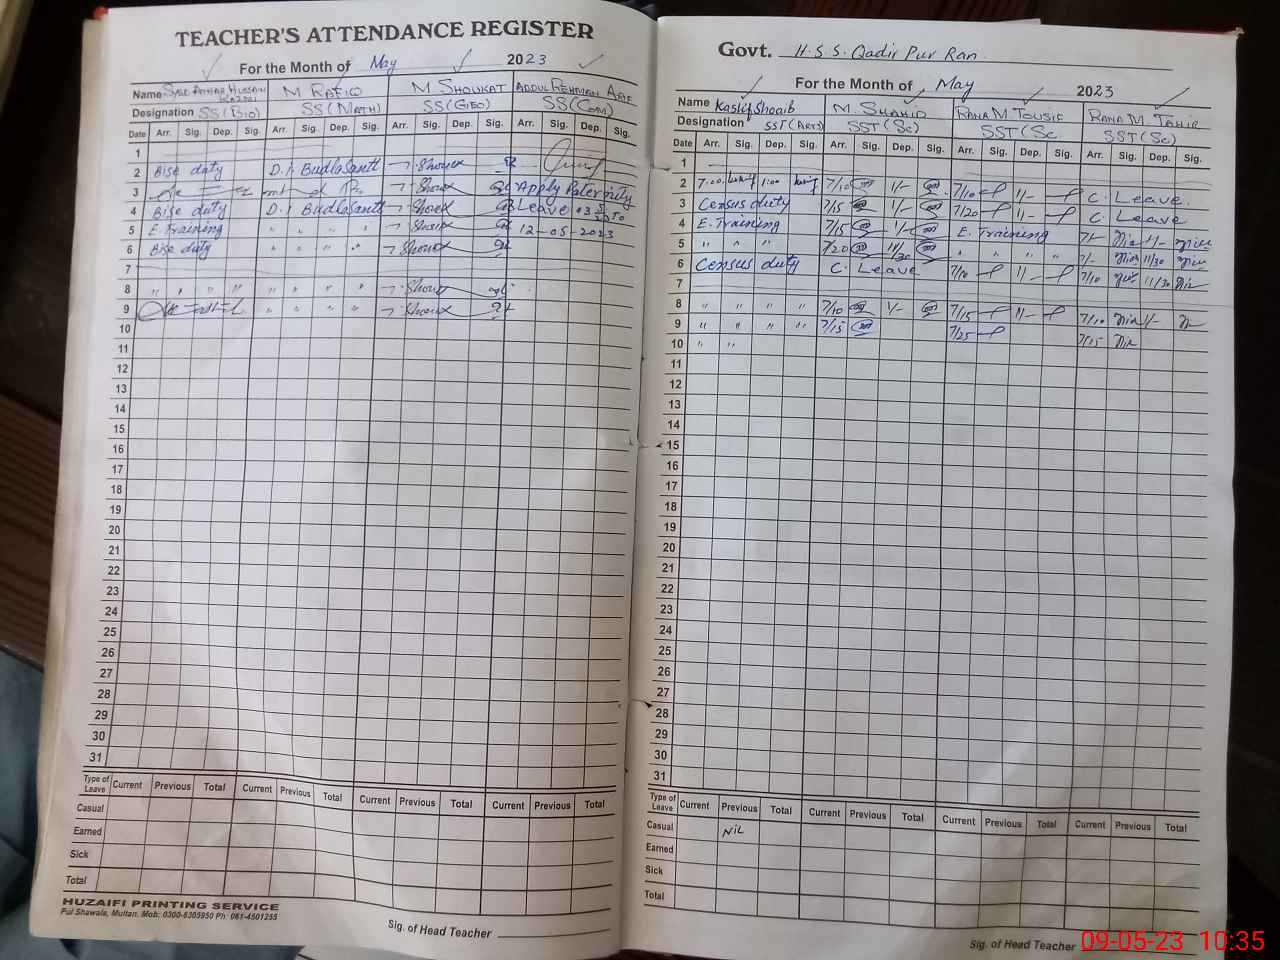 TEACHER'S ATTENDANCE REGISTER
For the Month of May 2023
Name Syed Akhtar Hussain M RAFIQ M SHOUKAT ABDUL REHMAN ARIF
Designation SS(Bio) SS(MATH) SS(GEO) SS(COM)
Date Arr. Sig. Dep. Sig. Arr. Sig. Dep. Sig. Arr. Sig. Dep. Sig. Arr. Sig. Dep. Sig.
1
2 Bise duty
3 Apply Paternity
4 Bise duty Leave
5 E.Training " " " " 12-05-2023
6 Bise duty " " " "
7
8 " " " " " " " "
9 " " " "
10
11
12
13
14
15
16
17
18
19
20
21
22
23
24
25
26
27
28
29
30
31
Type of Leave Current Previous Total Current Previous Total Current Previous Total Current Previous Total
Casual
Earned
Sick
Total
HUZAIFI PRINTING SERVICE
Pul Shawala, Multan. Mob: 0300-6305950 Ph: 061-4501255
Sig. of Head Teacher
Govt. H.S.S. Qadir Pur Ran
For the Month of May 2023
Name Kashif Shoaib M. SHAHID RANA M. TOUSIF RANA M TAHIR
Designation SST(Arts) SST(Sc) SST(Sc SST(Sc)
Date Arr. Sig. Dep. Sig. Arr. Sig. Dep. Sig. Arr. Sig. Dep. Sig. Arr. Sig. Dep. Sig.
1
2 7:00 1:00 7/10 1/- 7/10 11/- C. Leave.
3 Census duty 7/15 1/- 7/20 11/- C. Leave
4 E.Training 7/15 1/- E. Training 7/- 1/-
5 " " " 7/20 11/30 " " " " 7/- 11/30
6 Census duty C. Leave 7/10 11/- 7/10 11/30
7
8 " " " " 7/10 1/- 7/15 11/- 7/10 1/-
9 " " " " 7/15 7/25 7/15
10 " "
11
12
13
14
15
16
17
18
19
20
21
22
23
24
25
26
27
28
29
30
31
Type of Leave Current Previous Total Current Previous Total Current Previous Total Current Previous Total
Casual NIL
Earned
Sick
Total
Sig. of Head Teacher
09-05-23 10:35